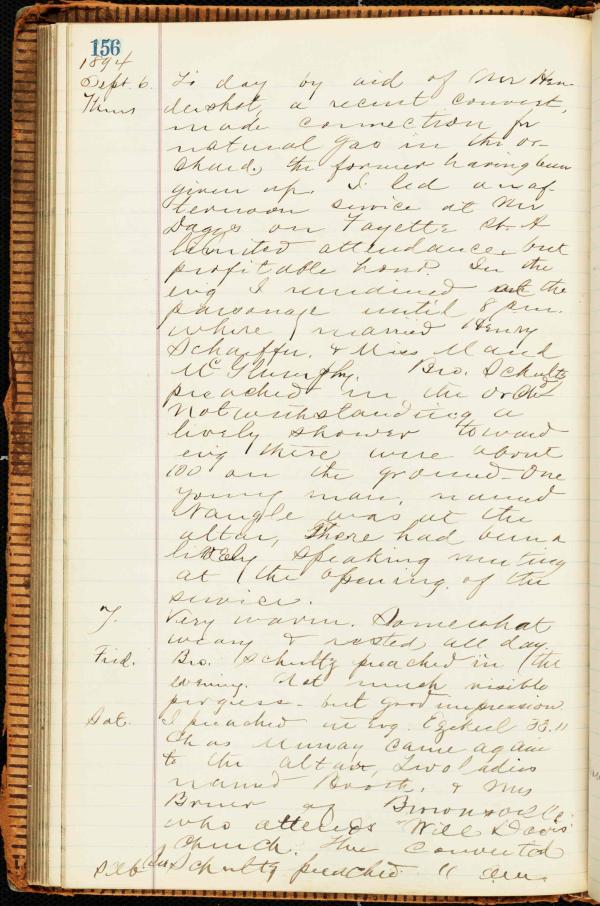 156
1894
Sept. 6. To day by aid of Mr Hen-
Thurs dershot, a recent convert,
made connection for
natural gas in the or-
chard, the former having been
given up. I led an af
ternoon service at Mr
Daggs on Fayette St. A
limited attendance, but
profitable hour. In the
evg I remained at the
parsonage until 8 p.m.
where I married Henry
Schaffer & Miss Maud
Mc Bro. Schultz
preached in the Orchd
Notwithstanding a
lively shower toward
evg there were about
100 on the ground - One
young man, named
Nangle was at the
altar, There had been a
lively speaking meeting
at the opening of the
service.
7. Very warm. Somewhat
weary & rested all day
Frid. Bro. Schultz preached in the
evening. Not much visible
progress - but good impression
Sat. I preached in evg. Ezekiel 33.11
Chas Murray came again
to the altar, Two ladies
named Booth, & Mrs
Briner of
who attends Will Davis'
church. The converted
Sab Schultz preached 11 am.